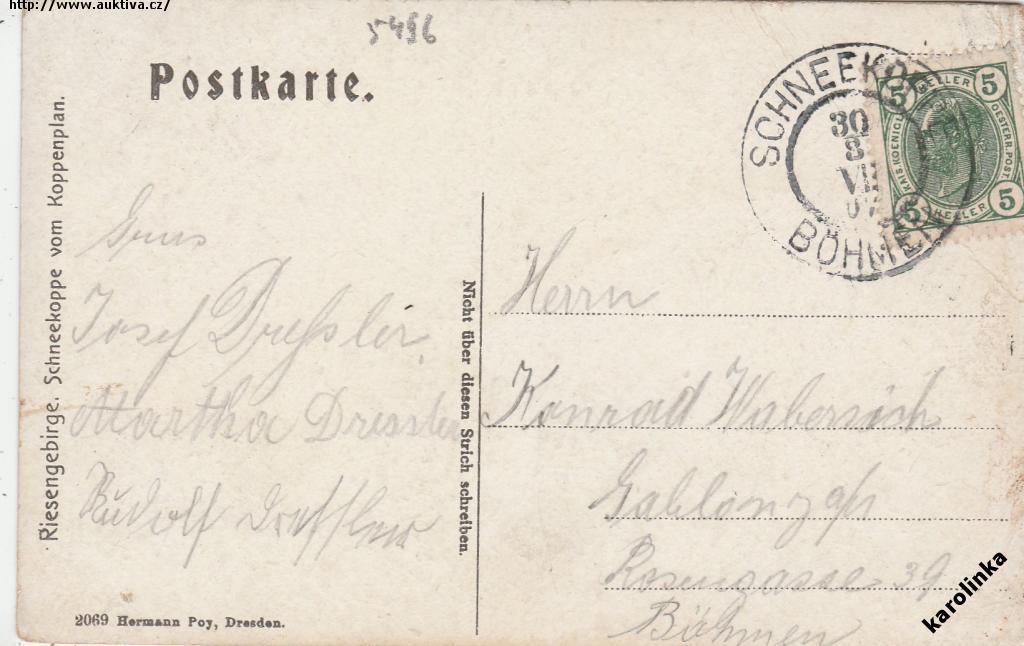 http://www.auktiva.cz/
5496
Postkarte.
Riesengebirge. Schneekoppe vom Koppenplan.
SCHNEEKO
30
8
VII
07
BÖHMEN
5 HELLER 5
KAIS. KOENIGL. OESTERR. POST.
5 HELLER 5
Gruss
Josef Dressler,
Martha Dressler
Rudolf Dressler
Nicht über diesen Strich schreiben.
Herrn
Konrad
Gablonz a/N
Rosengasse 39
Böhmen
2069 Hermann Poy, Dresden.
karolinka